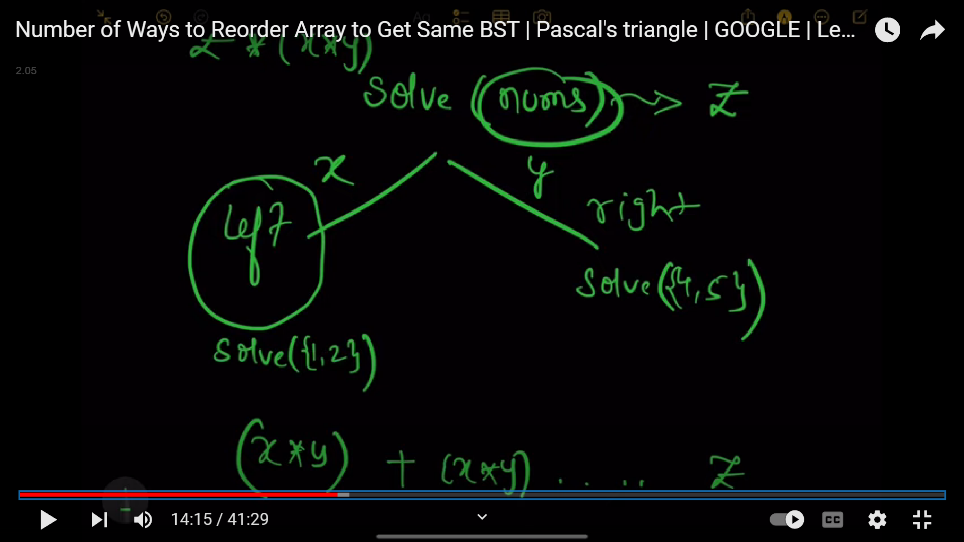 Number of Ways to Reorder Array to Get Same BST | Pascal's triangle | GOOGLE | Le...
2.05
Z * (x*y)
Solve (nums) → Z
x y
left right
Solve({4,5})
Solve({1,2})
(x*y) + (x*y) . . . . . Z
14:15 / 41:29
CC